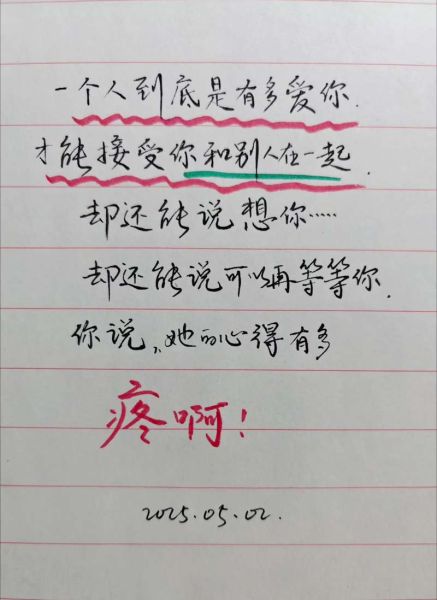 一个人到底是有多爱你.
才能接受你和别人在一起.
却还能说想你……
却还能说可以再等等你.
你说,她的心得有多
疼啊!
2025.05.02.